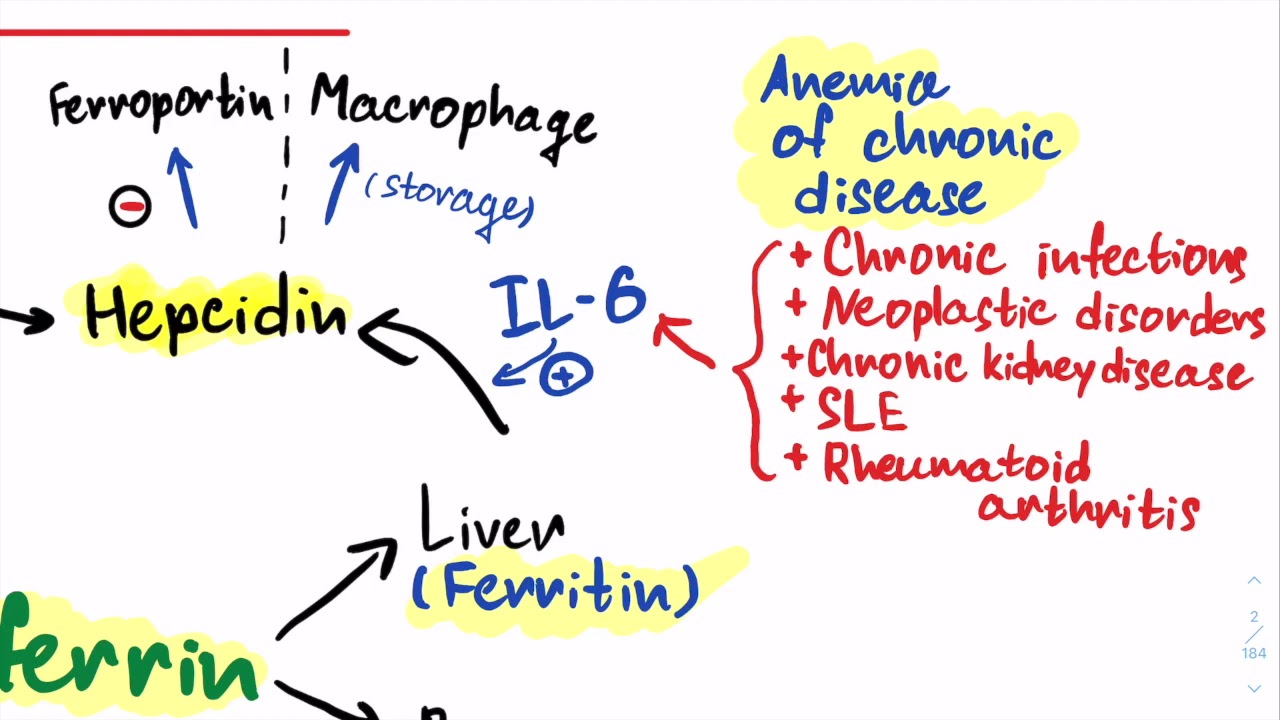 Ferroportin
Macrophage
(storage)
Hepcidin
IL-6
+
Anemia
of chronic
disease
+ Chronic infections
+ Neoplastic disorders
+ Chronic kidney disease
+ SLE
+ Rheumatoid
arthritis
Liver
(Ferritin)
ferrin
2
184